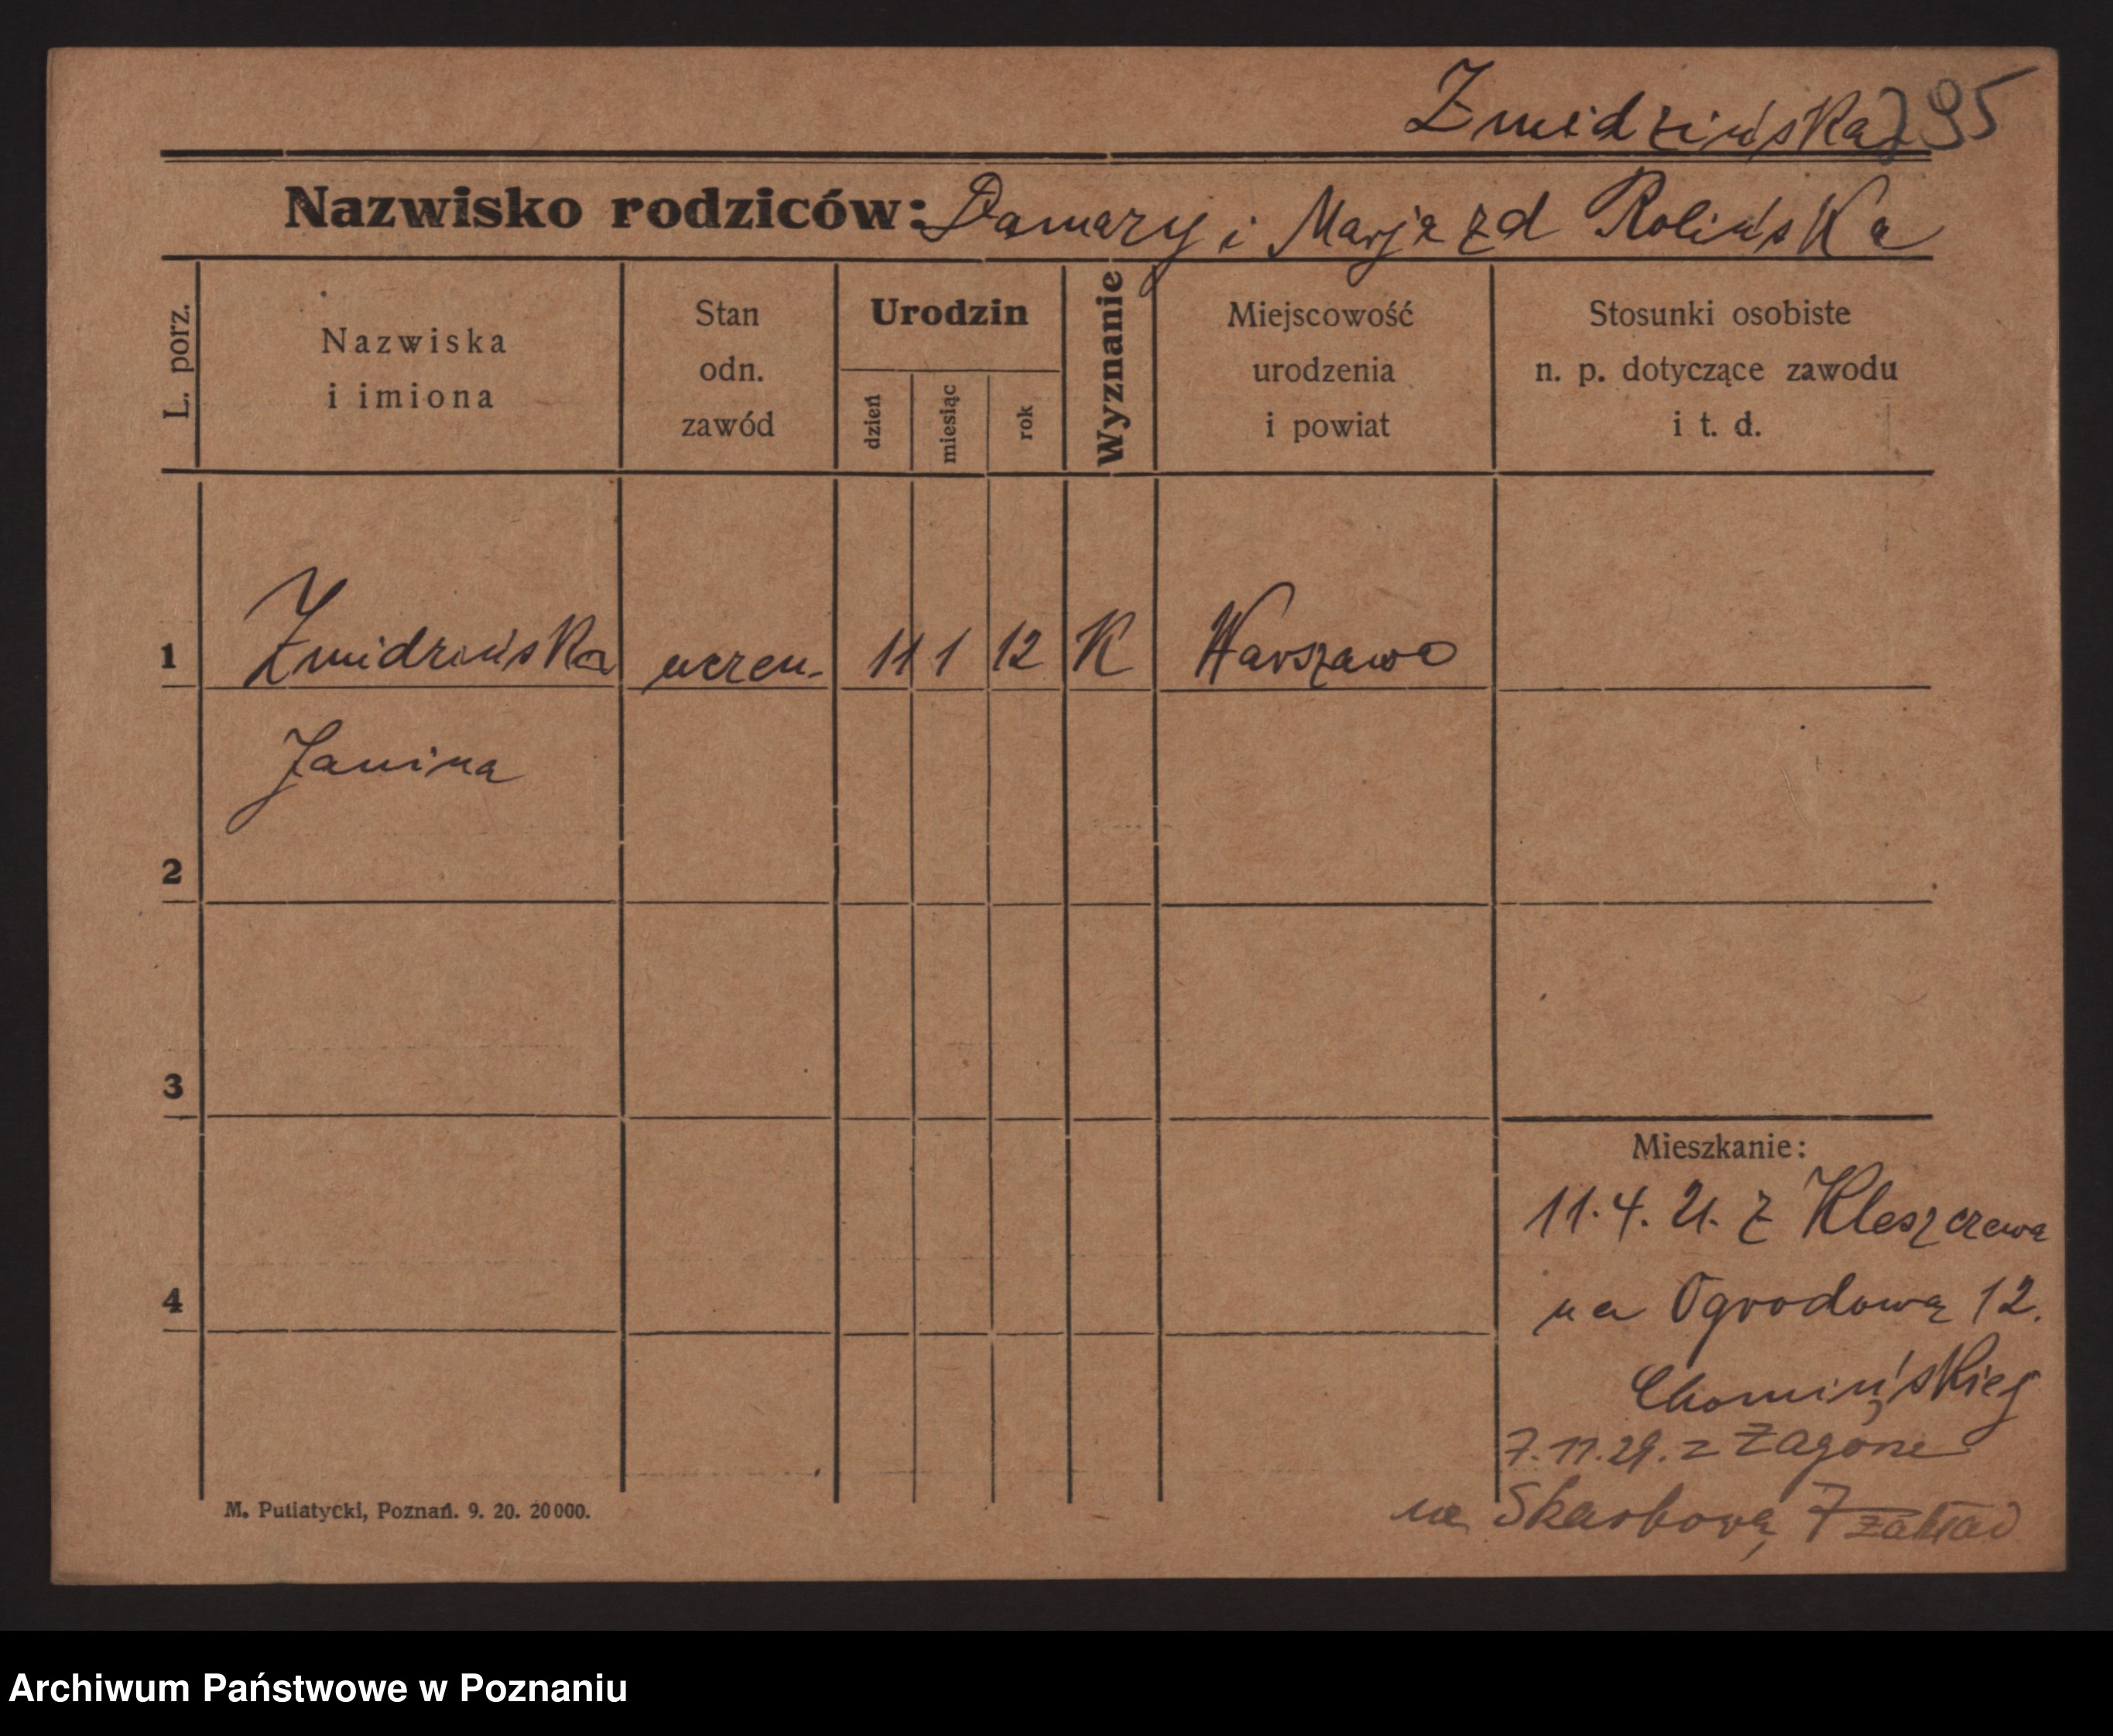 Żmidzińska 795
Nazwisko rodziców: Damazy i Marja zd Rolińska
L. porz.
Nazwiska
i imiona
Stan
odn.
zawód
Urodzin
dzień
miesiąc
rok
Wyznanie
Miejscowość
urodzenia
i powiat
Stosunki osobiste
n. p. dotyczące zawodu
i t. d.
1 Żmidzińska uczen. 11 1 12 K Warszawa
Janina
2
3
4
Mieszkanie:
11.4.21. z Kleszczewa
na Ogrodową 12.
Chomińskiej
7.11.29. z Żagóne
na Skarbową 7 zakład
M. Putiatycki, Poznań. 9. 20. 20000.
Archiwum Państwowe w Poznaniu